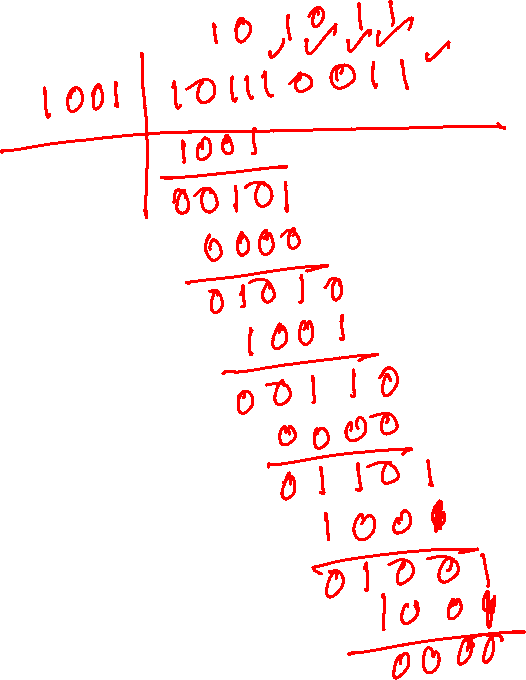 101011
1001 101110011
1001
00101
0000
01010
1001
00110
0000
01101
1001
01001
1001
0000